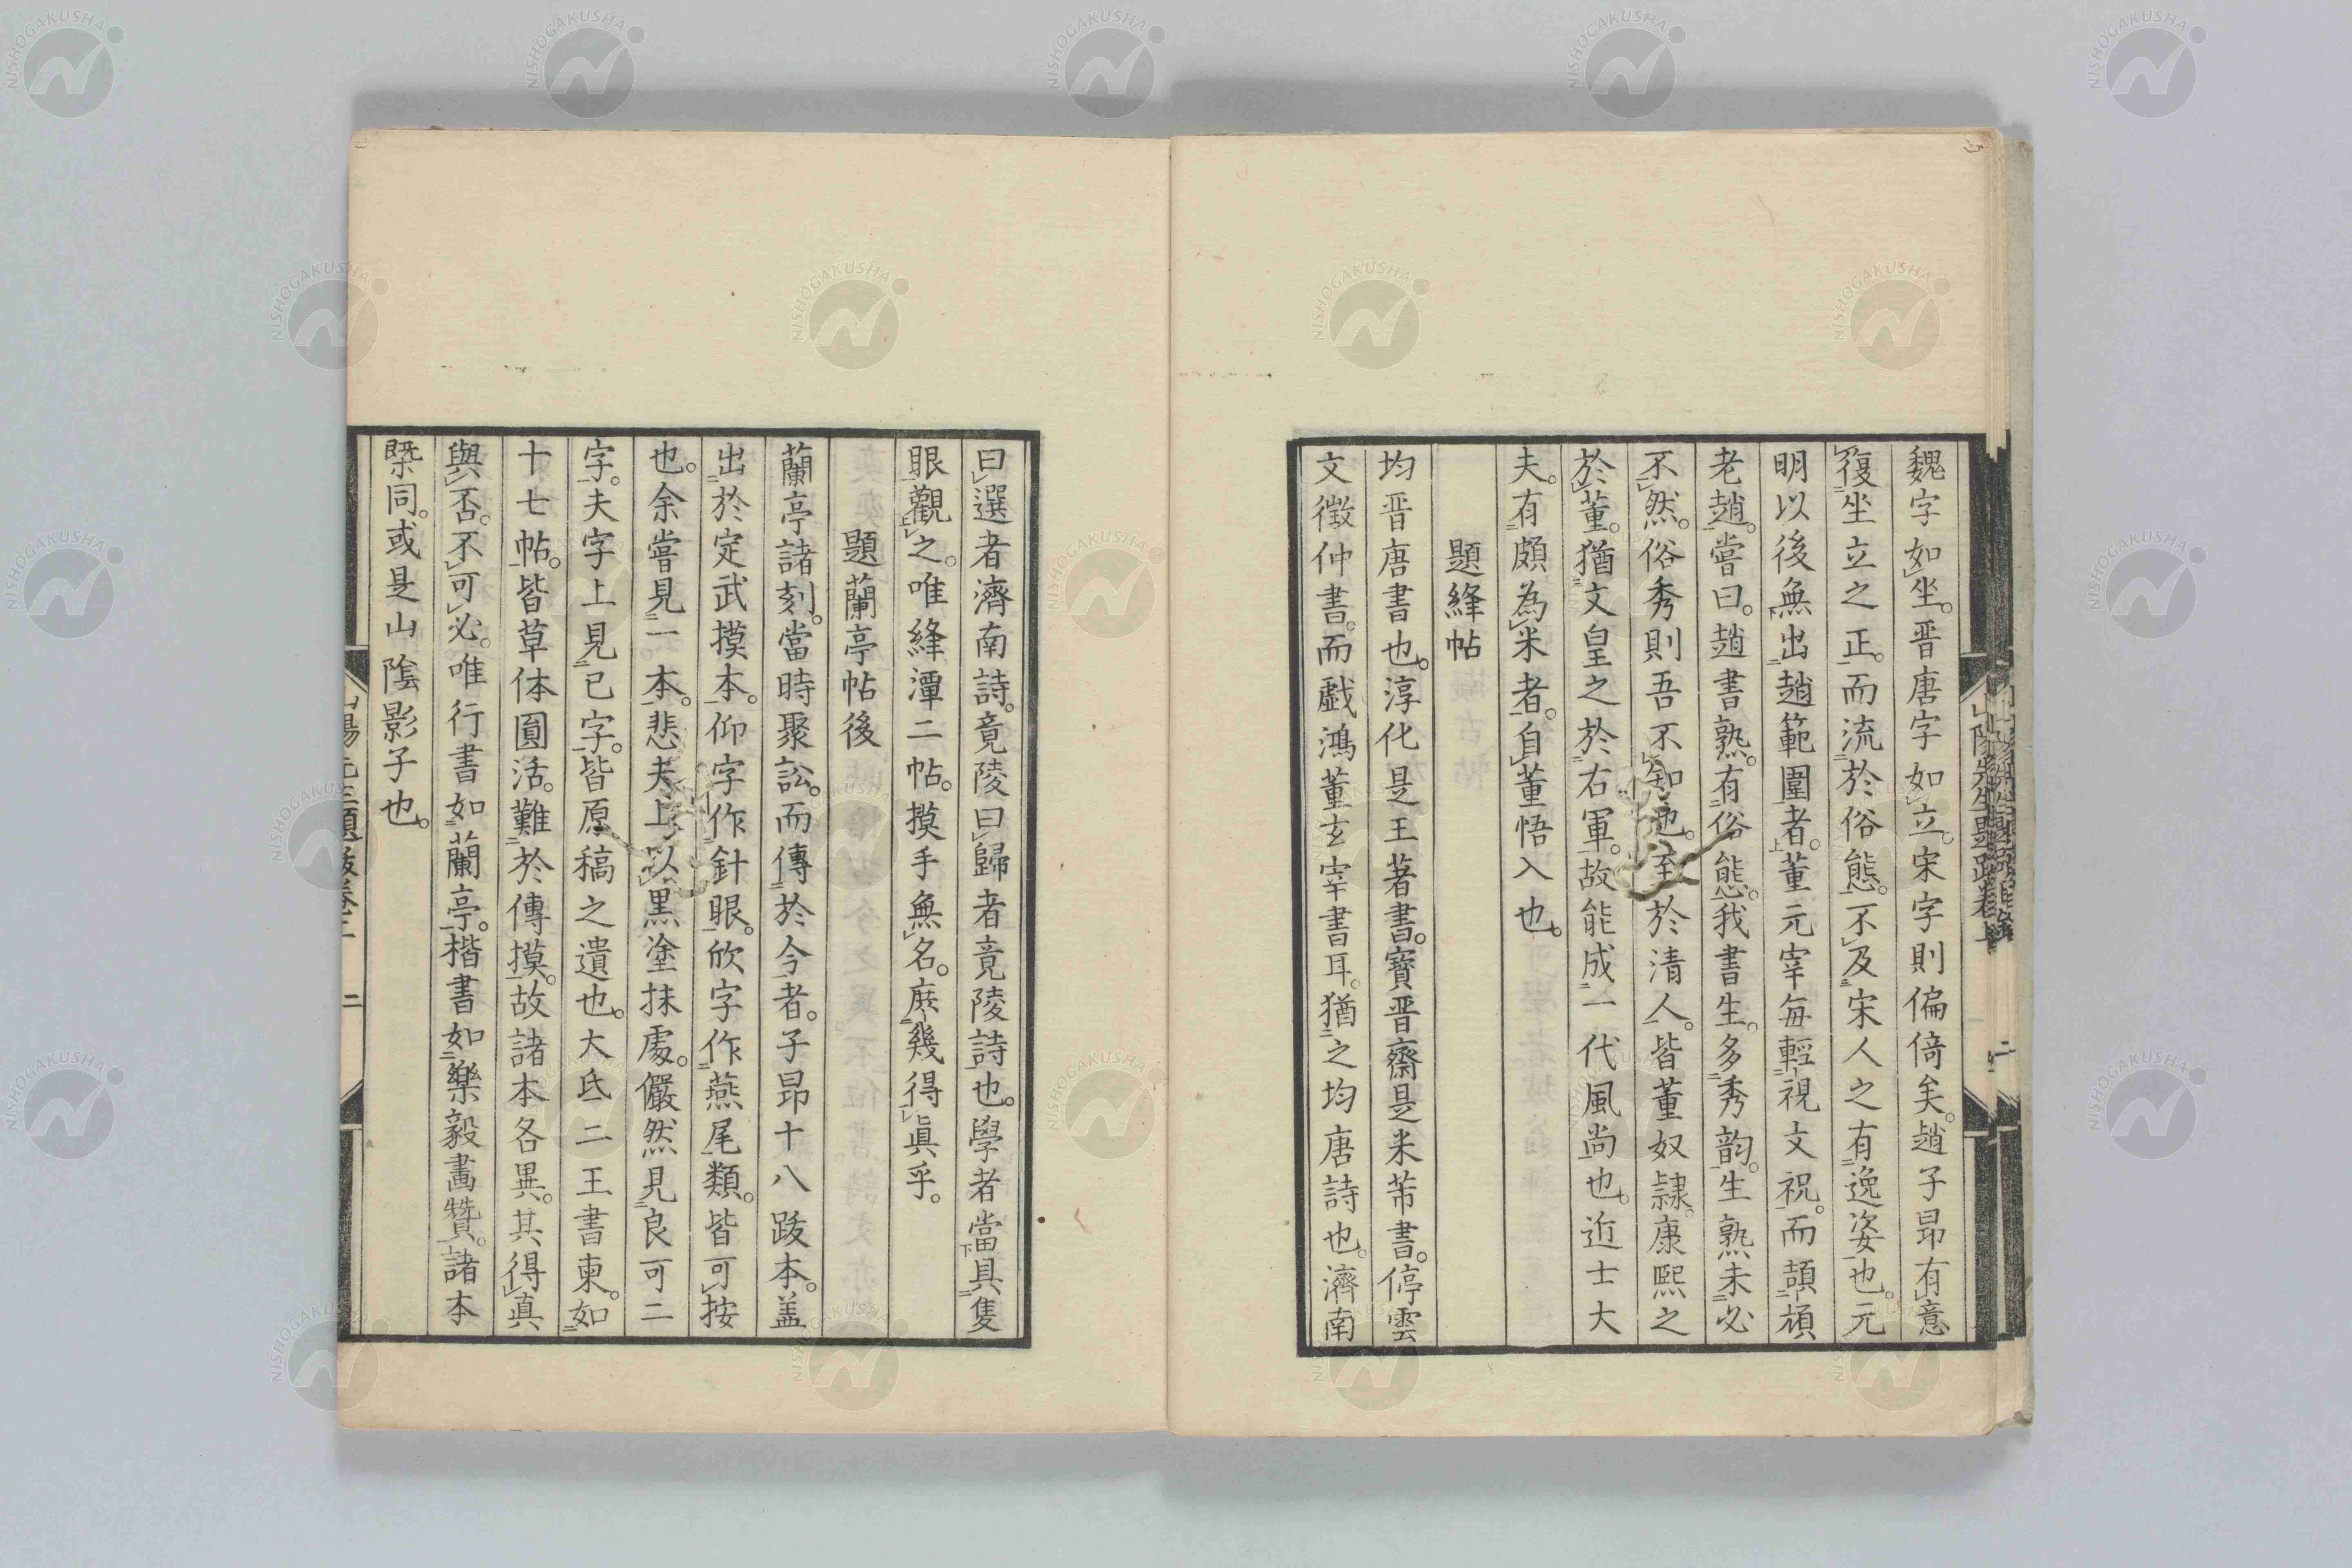 魏字如坐。晋唐字如立。宋字則偏倚矣。趙子昂有意
復坐立之正。而流於俗態。不及宋人之有逸姿也。元
明以後無出趙範圍者。董元宰毎輕視文祝。而頡頏
老趙。嘗曰。趙書熟。有俗態。我書生。多秀韵。生熟未必
不然。俗秀則吾不知也。至於清人。皆董奴隷。康熙之
於董。猶文皇之於右軍。故能成一代風尚也。近士大
夫。有頗為米者。自董悟入也。
題絳帖
均晋唐書也。淳化是王著書。寶晋齋是米芾書。停雲
文徴仲書。而戯鴻董玄宰書耳。猶之均唐詩也。濟南
曰選者濟南詩。竟陵曰歸者竟陵詩也。學者當具隻
眼觀之。唯絳潭二帖。摸手無名。庶幾得眞乎。
題蘭亭帖後
蘭亭諸刻。當時聚訟。而傳於今者。子昂十八跋本。盖
出於定武摸本。仰字作針眼。欣字作燕尾類。皆可按
也。余嘗見一本。悲夫上以黒塗抹處。儼然見良可二
字。夫字上見已字。皆原稿之遺也。大氐二王書東。如
十七帖。皆草体圓活。難於傳摸。故諸本各異。其得真
與否。不可必。唯行書如蘭亭。楷書如樂毅畵贊。諸本
槩同。或是山陰影子也。
二
NISHOGAKUSHA